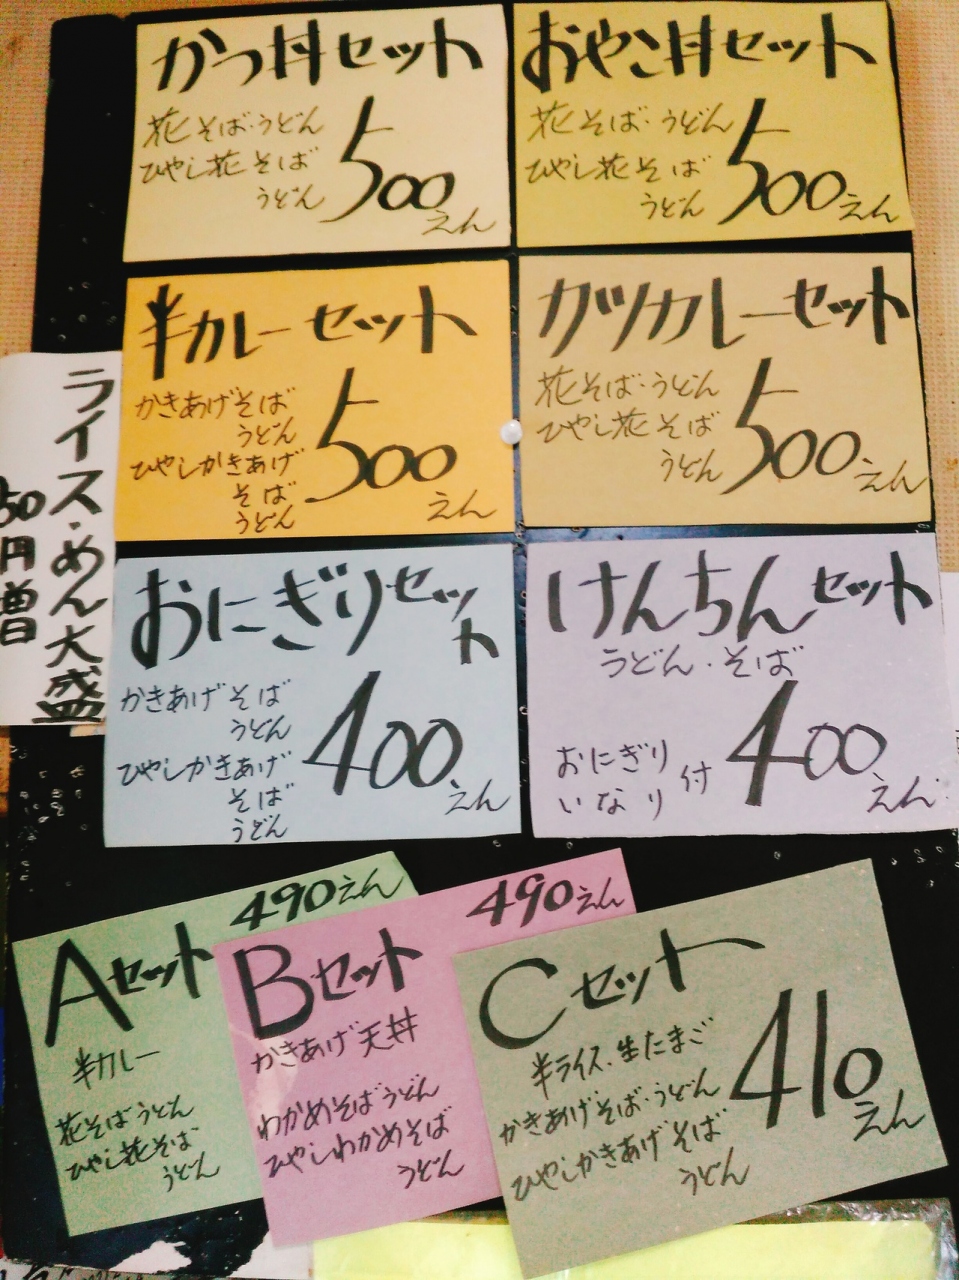 かつ丼セット
花そば・うどん
ひやし花そば
うどん
500
えん
おやこ丼セット
花そば・うどん
ひやし花そば
うどん
500
えん
半カレーセット
かきあげそば
うどん
ひやしかきあげ
そば
うどん
500
えん
カツカレーセット
花そば・うどん
ひやし花そば
うどん
500
えん
ライス・めん大盛
50円増
おにぎりセット
かきあげそば
うどん
ひやしかきあげ
そば
うどん
400
えん
けんちんセット
うどん・そば
おにぎり
いなり
付
400
えん
Aセット
490えん
半カレー
花そばうどん
ひやし花そば
うどん
Bセット
490えん
かきあげ天丼
わかめそばうどん
ひやしわかめそば
うどん
Cセット
半ライス、生たまご
かきあげそば・うどん
ひやしかきあげそば
うどん
410
えん